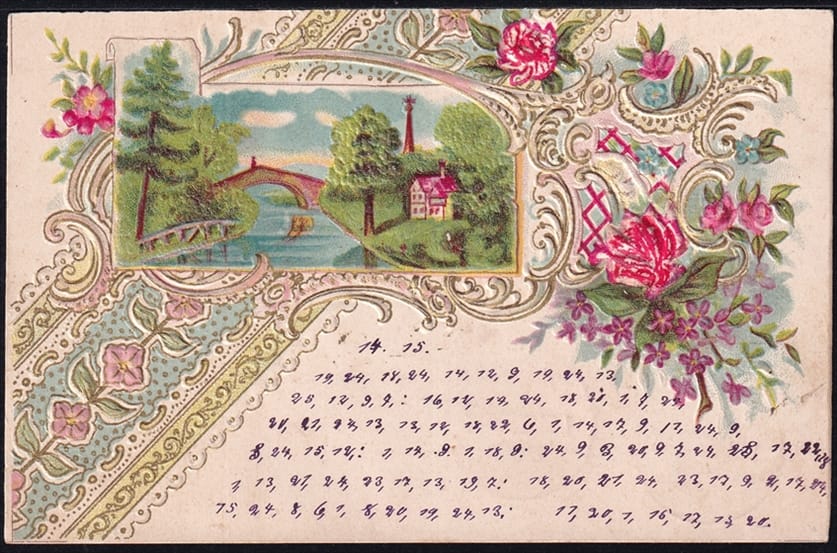 14. 15.-
19, 24, 18, 24, 14, 12, 9, 19, 24, 13,
25, 12, 9, 9,: 16, 12, 19, 24, 18, 20, 1, 7, 24,
20, 21, 24, 13, 13, 12, 18, 22, 6, 1, 14, 17, 9, 17, 24, 9,
8, 24, 15, 12,: 1, 14, 9, 1, 18, 9: 24, 9, 8, 20, 9, 7, 24, 25, 17, 22, 18
1, 13, 21, 24, 23, 17, 13, 19, 7,: 18, 20, 21, 24, 23, 17, 9, 2, 17, 24,
15, 24, 8, 6, 1, 8, 20, 19, 24, 13; 17, 20, 1, 16, 17, 13, 20.